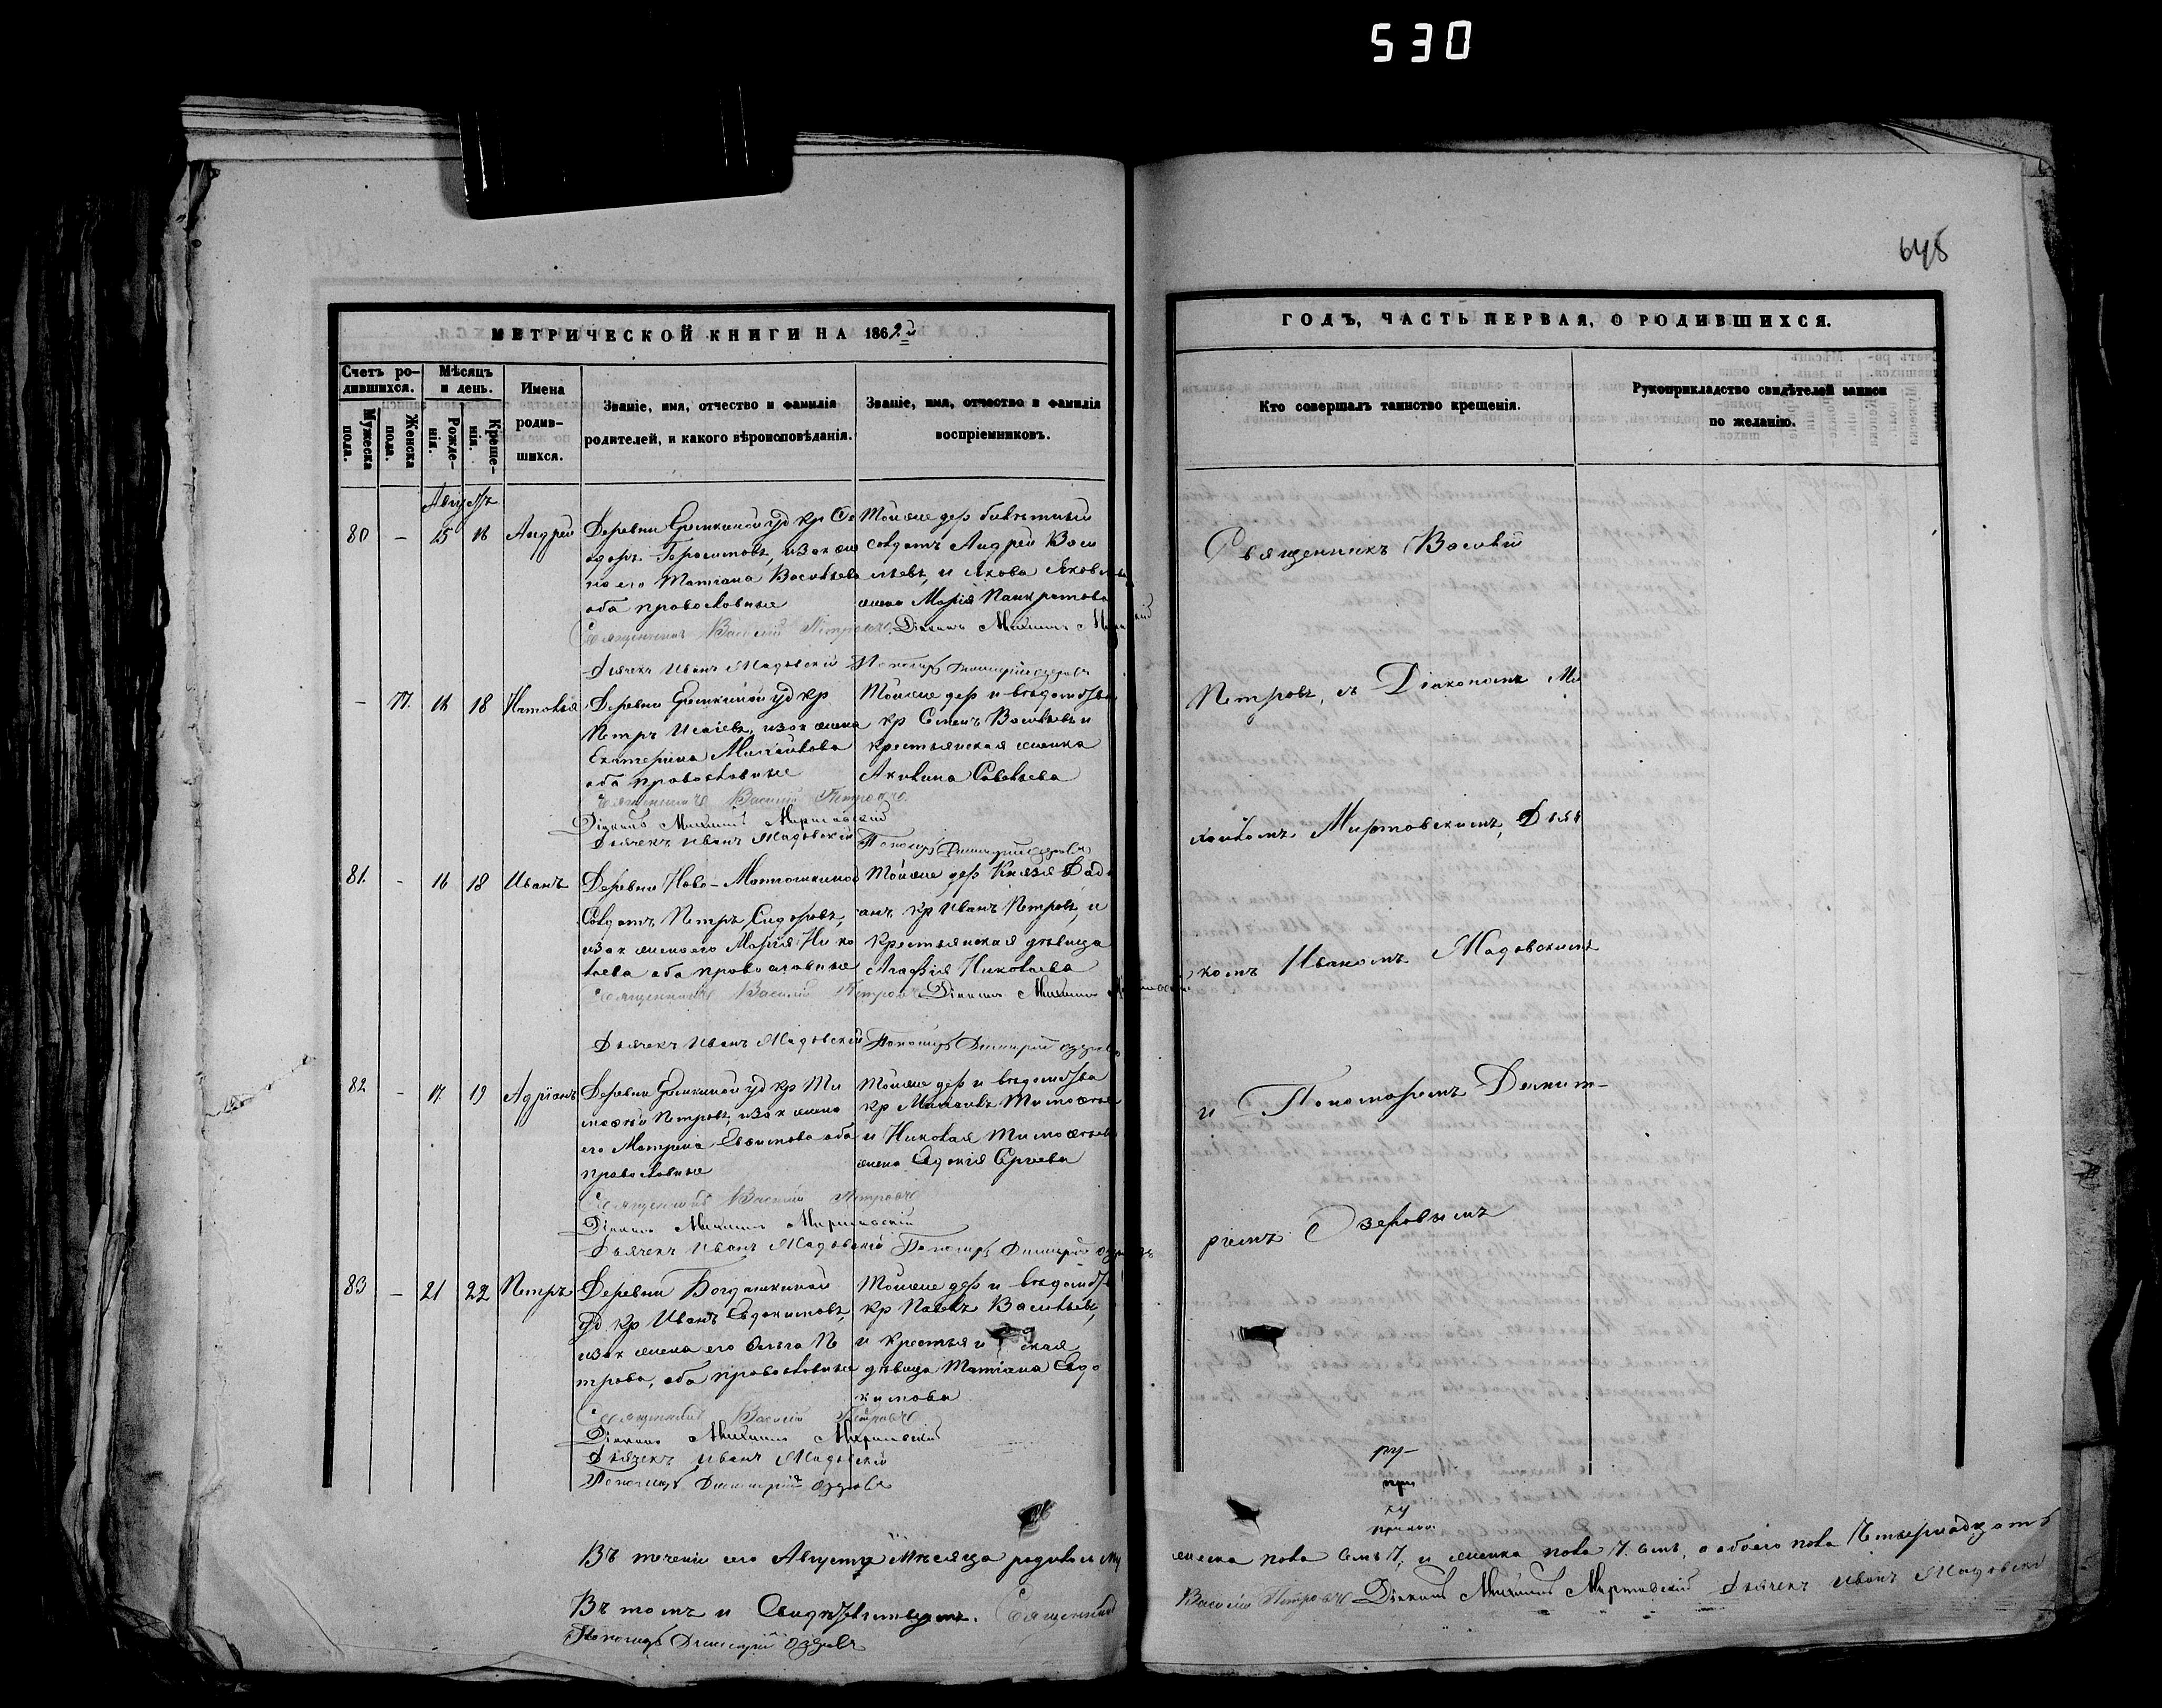 530
645
МЕТРИЧЕСКОЙ КНИГИ НА 1862й
ГОДЪ, ЧАСТЬ ПЕРВАЯ, О РОДИВШИХСЯ.
Счетъ родившихся.
Мужеска пола.
Женска пола.
Мѣсяцъ и день.
Рожденія.
Крещенія.
Имена родившихся.
Званіе, имя, отчество и фамилія
родителей, и какого вѣроисповѣданія.
Званіе, имя, отчество и фамилія
воспріемниковъ.
Кто совершалъ таинство крещенія.
Рукоприкладство свидѣтелей записи
по желанію.
Августъ
80 – 15 16 Андрей
Деревни уд кр Ѳе
одоръ Герасимовъ, зак же
на его Татіана Васильева
оба православные
Тойже дер билетный
солдатъ Андрей Васи
льевъ, и Якова Яковлева
жена Марія Панкратова
Священникъ Василій Петровъ Діаконъ Михаилъ
Дьячекъ Иванъ Мадовскій Пономарь Димитрій Озеровъ
– 77. 16 18 Наталія
Деревни уд кр
Петръ Исаіевъ, зак жена
Екатерина Михайлова
оба православные
Тойже дер и вѣдомства
кр Семенъ Васильевъ и
крестьянская женка
Акилина Савельева
Священникъ Василій Петровъ
Діаконъ Михаилъ Миртовскій
Дьячекъ Иванъ Мадовскій Пономарь Димитрій Озеровъ
81. – 16 18 Иванъ
Деревни Ново-
Солдатъ Петръ Сидоровъ,
зак жена его Марія Нико
лаева оба православные
Тойже дер Князя
кр Иванъ Петровъ, и
Крестьянская дѣвица
Агафія Николаева
Священникъ Василій Петровъ Діаконъ Михаилъ Миртовскій
Дьячекъ Иванъ Мадовскій Пономарь Димитрій Озеровъ
82 – 17 19 Адріанъ
Деревни уд кр Ти
моѳей Петровъ, зак жена
его Матрона Евѳимова оба
православные
Тойже дер и вѣдомства
кр Михаилъ Тимоѳеевъ
и Николая Тимоѳеева
жена Евдокія Сергіева
Священникъ Василій Петровъ
Діаконъ Михаилъ Миртовскій
Дьячекъ Иванъ Мадовскій Пономарь Димитрій Озеровъ
83 – 21 22 Петръ
Деревни Богдашкиной
уд. кр Иванъ Евдокимовъ,
зак жена его Ольга Пе
трова, оба православные
Тойже дер и вѣдомства
кр Павелъ Васильевъ,
и крестьянская
дѣвица Татіана Евдо
кимова
Священникъ Василій Петровъ
Діаконъ Михаилъ Миртовскій
Дьячекъ Иванъ Мадовскій
Пономарь Димитрій Озеровъ
Священникъ Василій
Петровъ, съ Діакономъ Ми
хаиломъ Миртовскимъ, Дья
комъ Иваномъ Мадовскимъ
и Пономаремъ Димит-
ріемъ Озеровымъ
ру-
при
ку
Въ теченіи сего Августа Мѣсяца родилось му
жеска пола семь 7, и женска пола 7. семь, а обоего пола Четырнадцать
Въ томъ и Свидѣтельствуемъ. Священникъ
Василій Петровъ Діаконъ Михаилъ Миртовскій Дьячекъ Иванъ Мадовскій
Пономарь Димитрій Озеровъ